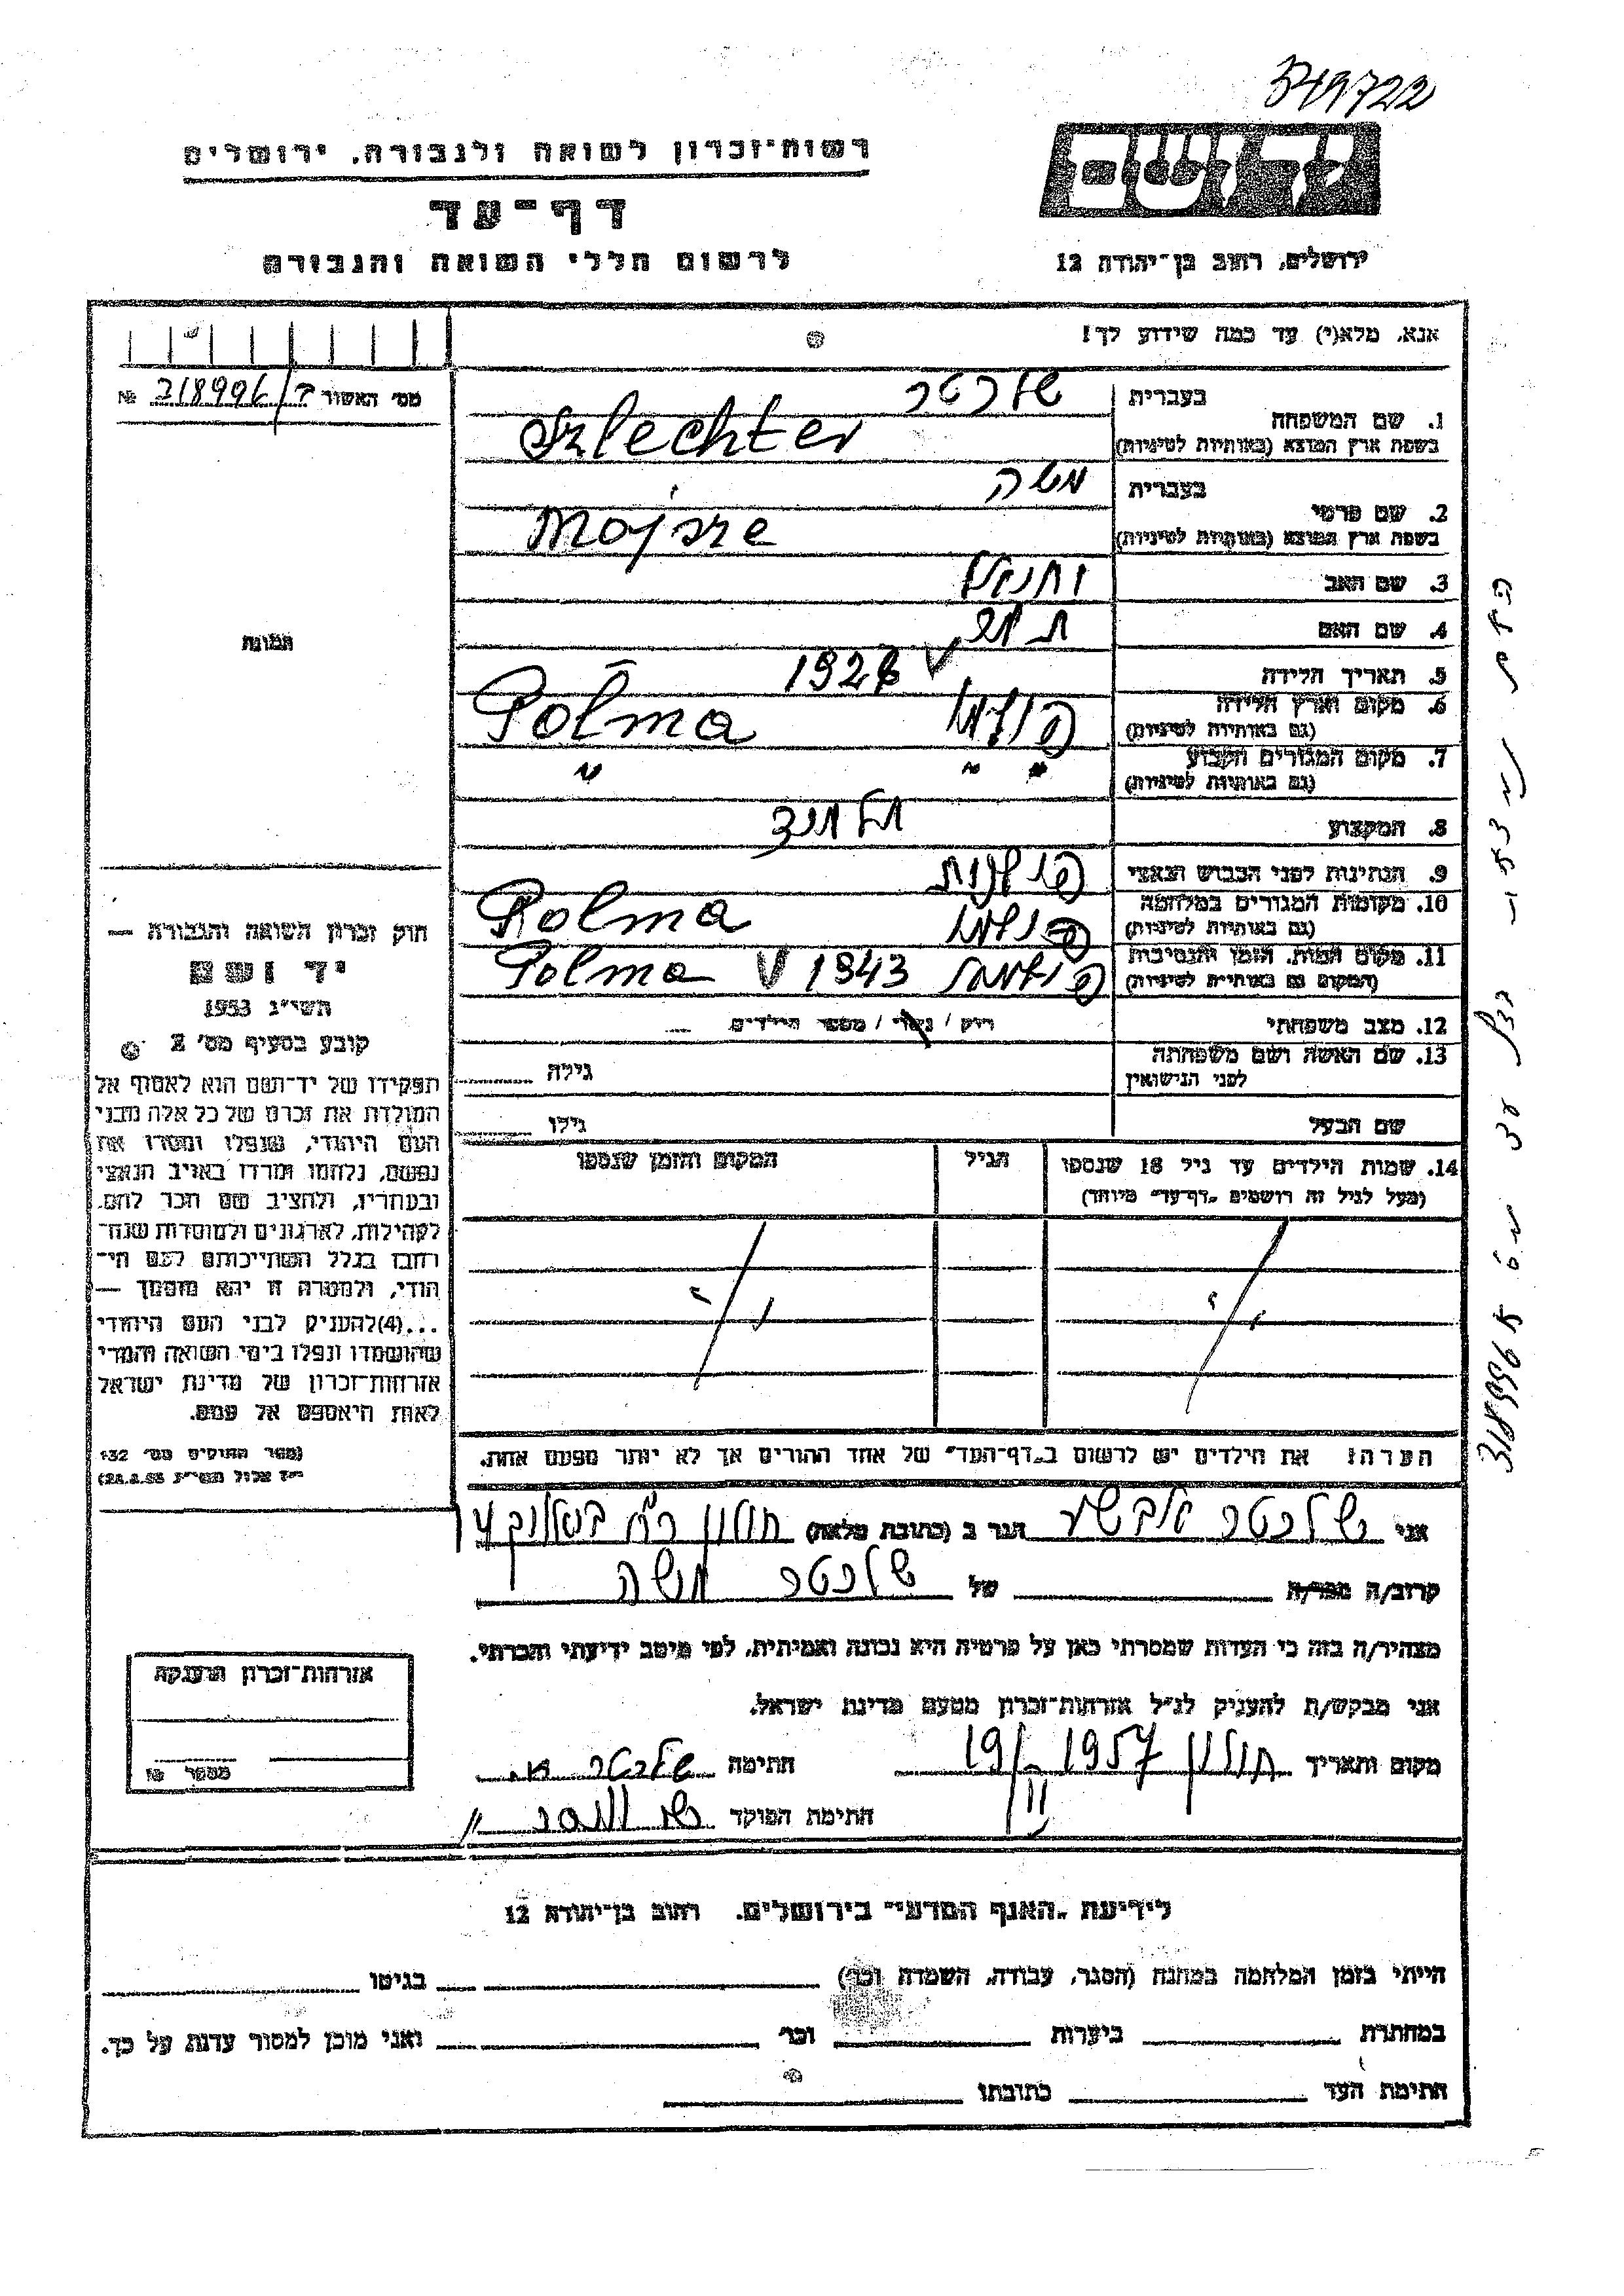 349722
ידושם
רשות־זכרון לשואה ולגבורה. ירושלים
דף־עד
לרשום חללי השואה והגבורה
ירושלים, רחוב בן־יהודה 12
אנא, מלא(י) עד כמה שידוע לך!
מס׳ האשור №
1. שם המשפחה
בעברית שלכטר
בשפת ארץ המוצא (באותיות לטיניות) Szlechter
2. שם פרטי
בעברית משה
בשפת ארץ המוצא (באותיות לטיניות) Mojsze
3. שם האב
4. שם האם
5. תאריך הלידה
6. מקום וארץ הלידה
(גם באותיות לטיניות)
7. מקום המגורים הקבוע
(גם באותיות לטיניות) " "
8. המקצוע תלמיד
9. הנתינות לפני הכבוש הנאצי פולנית
10. מקומות המגורים במלחמה
(גם באותיות לטיניות)
11. מקום המות, הזמן והנסיבות 1943
(המקום גם באותיות לטיניות)
12. מצב משפחתי רוק / נשוי / מספר הילדים
13. שם האשה ושם משפחתה
לפני הנישואין גילה
שם הבעל גילו
14. שמות הילדים עד גיל 18 שנספו הגיל המקום והזמן שנספו
(מעל לגיל זה רושמים „דף־עד" מיוחד)
הערה! את הילדים יש לרשום ב„דף־העד" של אחד ההורים אך לא יותר מפעם אחת.
תמונה
חוק זכרון השואה והגבורה —
יד ושם
תשי״ג 1953
קובע בסעיף מס׳ 2
תפקידו של יד־ושם הוא לאסוף אל
המולדת את זכרם של כל אלה מבני
העם היהודי, שנפלו ומסרו את
נפשם, נלחמו ומרדו באויב הנאצי
ובעוזריו, ולהציב שם וזכר להם,
לקהילות, לארגונים ולמוסדות שנח־
רבו בגלל השתייכותם לעם הי־
הודי, ולמטרה זו יהא מוסמך —
...(4)להעניק לבני העם היהודי
שהושמדו ונפלו בימי השואה והמרי
אזרחות־זכרון של מדינת ישראל
לאות היאספם אל עמם.
(ספר החוקים מס׳ 132
י״ז אלול תשי״ג 28.8.53)
אני שלכטר אלישע הגר ב (כתובת מלאה) חולון
קרוב/ה מכר/ה של שלכטר משה
מצהיר/ה בזה כי העדות שמסרתי כאן על פרטיה היא נכונה ואמיתית, לפי מיטב ידיעתי והכרתי.
אני מבקש/ת להעניק לנ״ל אזרחות־זכרון מטעם מדינת ישראל.
מקום ותאריך חולון 1957 חתימה שלכטר
חתימת הפוקד
אזרחות־זכרון הוענקה
מספר №
לידיעת „האגף המדעי" בירושלים. רחוב בן־יהודה 12
הייתי בזמן המלחמה במחנה (הסגר, עבודה, השמדה וכו׳) בגיטו
במחתרת ביערות וכו׳ ואני מוכן למסור עדות על כך.
חתימת העד כתובתו